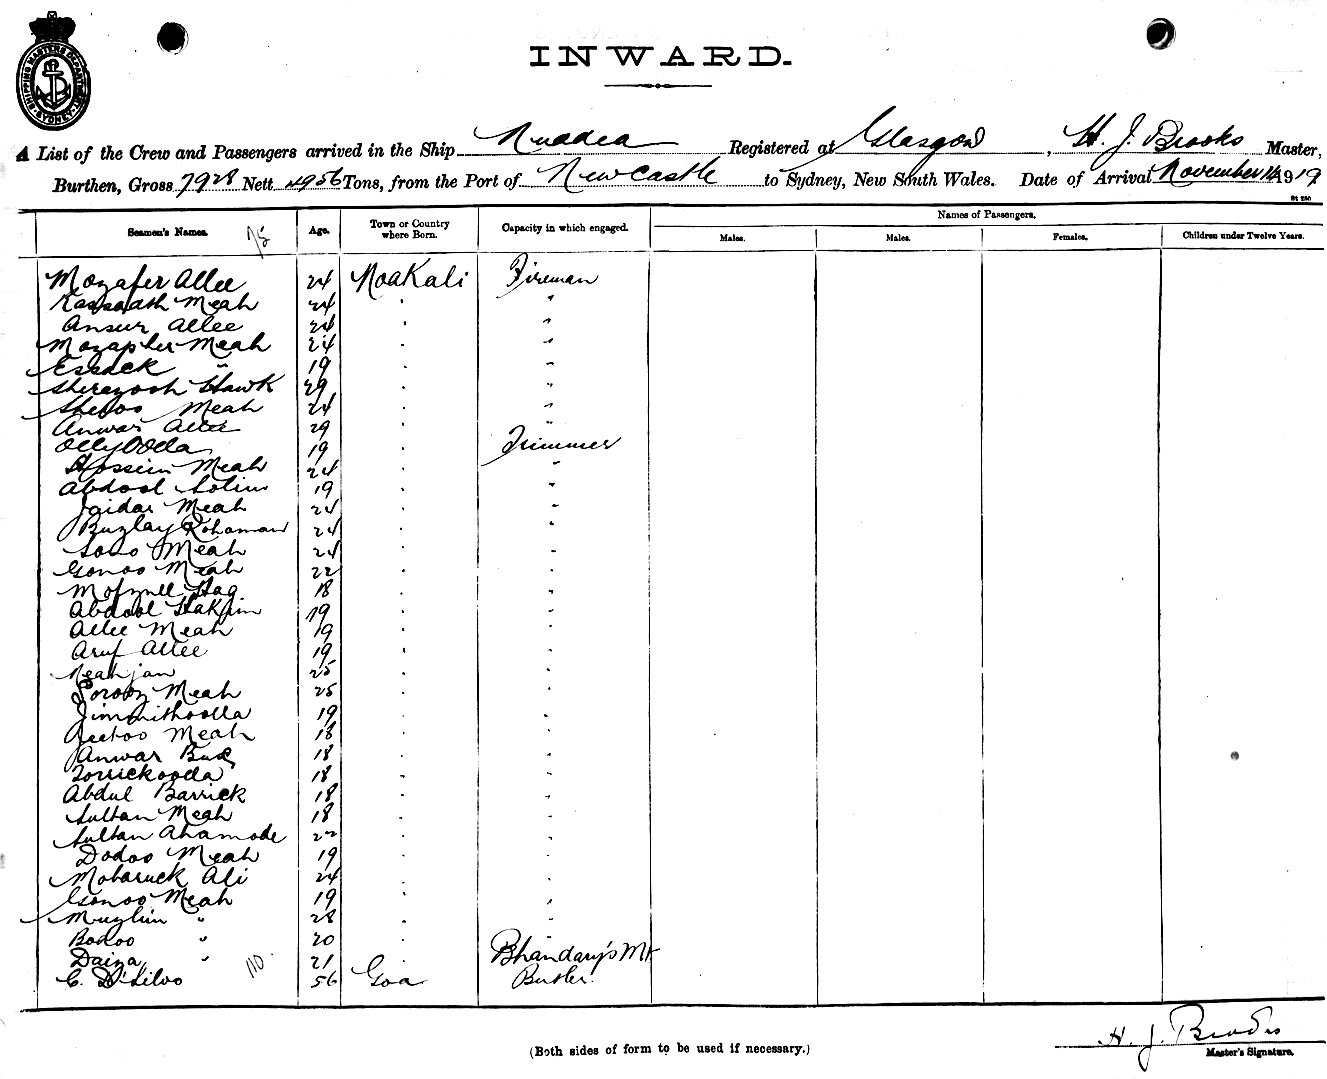 SHIPPING MASTERS DEPARTMENT SYDNEY
INWARD.
A List of the Crew and Passengers arrived in the Ship Nuddea Registered at Glasgow, H. J. Brooks Master,
Burthen, Gross 7928 Nett 4956 Tons, from the Port of Newcastle to Sydney, New South Wales. Date of Arrival November 14 1919
Names of Passengers.
Seamen's Names. Age. Town or Country where Born. Capacity in which engaged. Males. Males. Females. Children under Twelve Years.
Mozafer Allee 24 Noakali Fireman
Meah 24 " "
Ansur Allee 24 " "
Mozapher Meah 24 " "
Essack " 19 " "
Hawk 29 " "
Meah 24 " "
Anwar Allee 29 " "
19 " Trimmer
Hossein Meah 24 " "
Abdool 19 " "
Jaidar Meah 24 " "
Buzlay Rohaman 24 " "
Meah 24 " "
Gonoo Meah 22 " "
Haq 18 " "
Abdool Hakim 19 " "
Allee Meah 19 " "
Aruf Allee 19 " "
Neahjan 25 " "
Meah 25 " "
19 " "
Meah 18 " "
Anwar Bux 18 " "
18 " "
Abdul Barrick 18 " "
Sultan Meah 18 " "
Sultan Ahamode 22 " "
Dodoo Meah 19 " "
Mobaruck Ali 24 " "
Gonoo Meah 19 " "
Muzlim " 28 " "
Bodoo " 20 " "
Daiza " 21 " Bhandary's Mt
C. D'Silvo 56 Goa Butler.
110
H. J. Brooks
(Both sides of form to be used if necessary.)
Master's Signature.